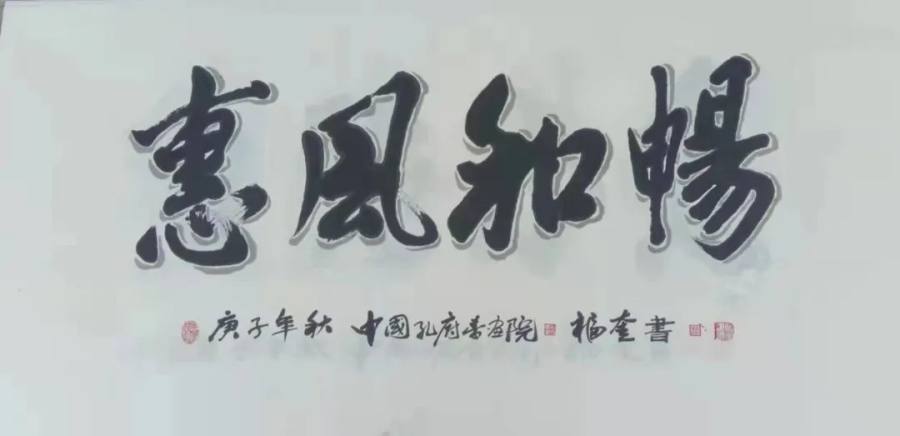 惠風和暢
庚子年秋 中國孔府書畫院 福奎書